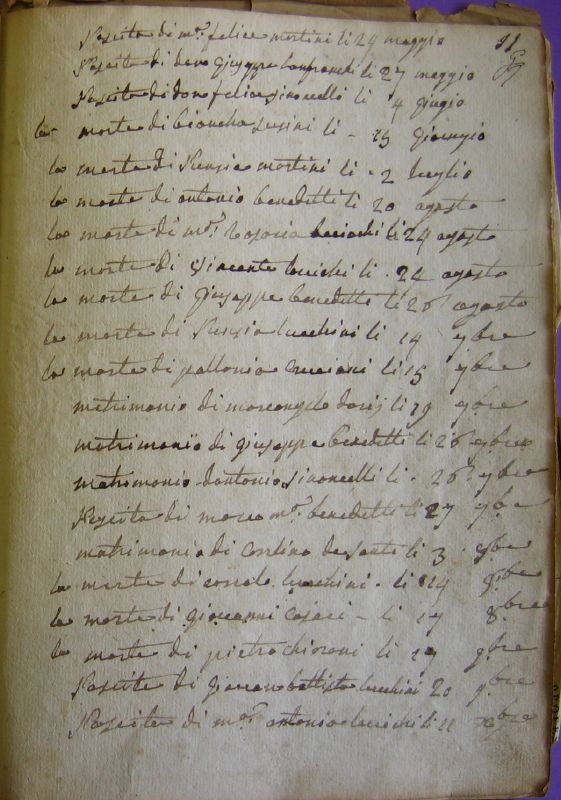 Nascita di m.ª felice martini li 29 maggio 91
Nascita di giuseppe lanfranchi li 27 maggio
Nascita di don felice simonelli li 4 giugio
la morte di biancha susini li - 25
la morte di Nunzia martini li - 2 luglio
la morte di antonio benedetti li 20 agosto
la morte di m.ª li 24 agosto
la morte di Vincente li . 24 agosto
la morte di giuseppe benedetti li 26 agosto
la morte di Nunzia lucchini li 14 9bre
la morte di pallonia li 15 9bre
matrimonio di marcangelo li 19 9bre
matrimonio di giuseppe benedetti li 26 9bre
matrimonio dantonio simonelli li . 26 9bre
Nascita di m.ª benedetti li 27 9bre
matrimonia di de santi li 3 8bre
la morte di lucchini . li 14 8bre
la morte di giovanni casaci - li 17 8bre
la morte di pietro li 19 9bre
Nascita di giovan battista lucchini 20 9bre
Nascita di m.ª antonia li 11 bre